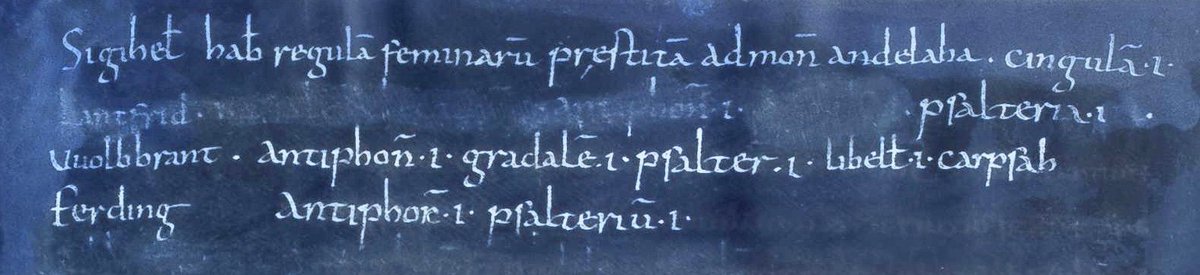 Sigiheł hab̄ regulā feminarū pręstitā ad mon̄ andelaha . cingulā·ı·
Lantfrid · antiphon̄ ·ı· psalteriā·ı ·
Vuolbbrant · antiphon̄·ı· gradalē·ı· psalter·ı· libelł·ı· carpsah
ferding antiphoñ·ı· psalteriū·ı·